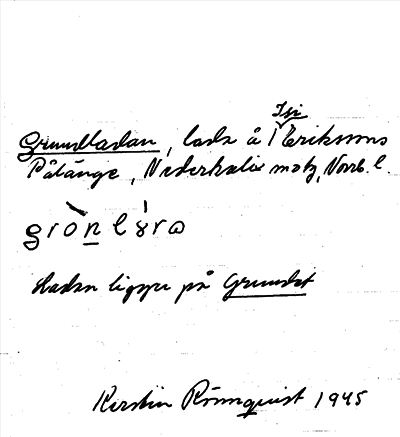 Isi
Grundladan, lada å Erikssons
Påtänge, Nederkalix motz, Norrb. l.
gròn lɣ́ra
Ladan ligger på Grundet
Kerstin Rönnquist 1945